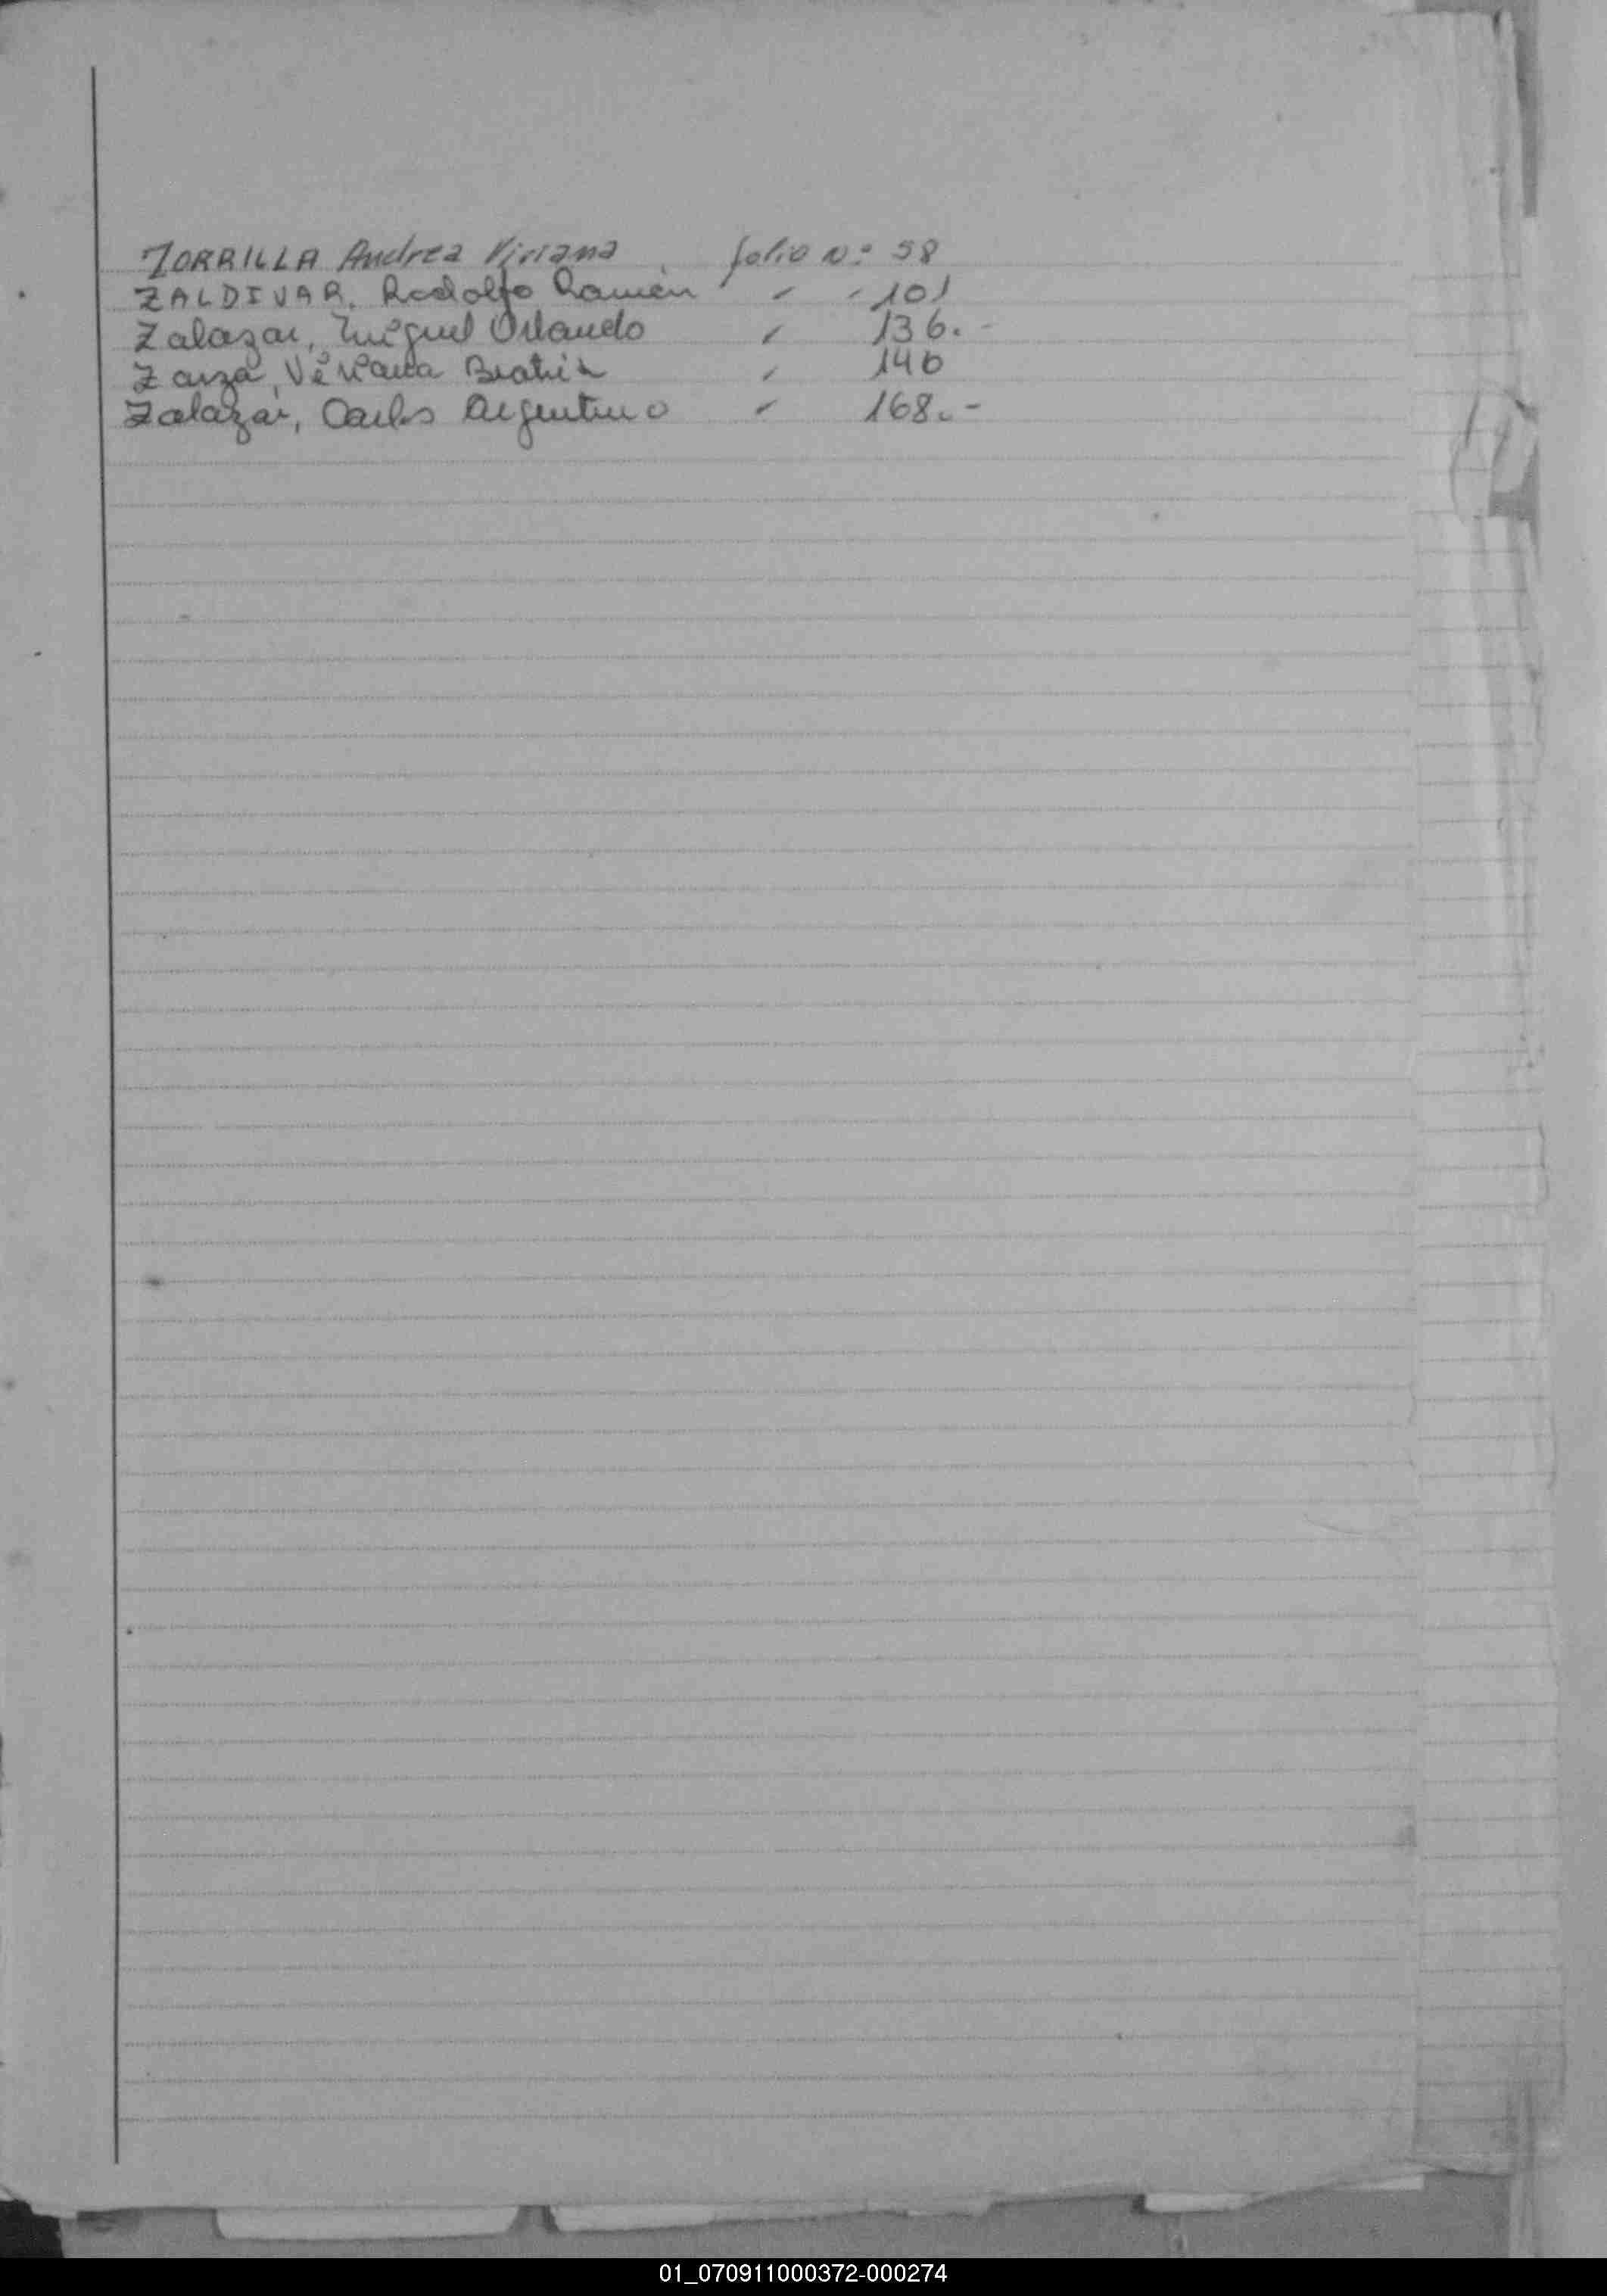 ZORRILLA Andrea Viviana folio Nº 58
ZALDIVAR, Rodolfo Ramón " " 101
Zalazar, Miguel Orlando " 136.-
Zarza, Viviana Beatriz " 140
Zalazar, Carlos Argentino " 168.-
01_070911000372-000274